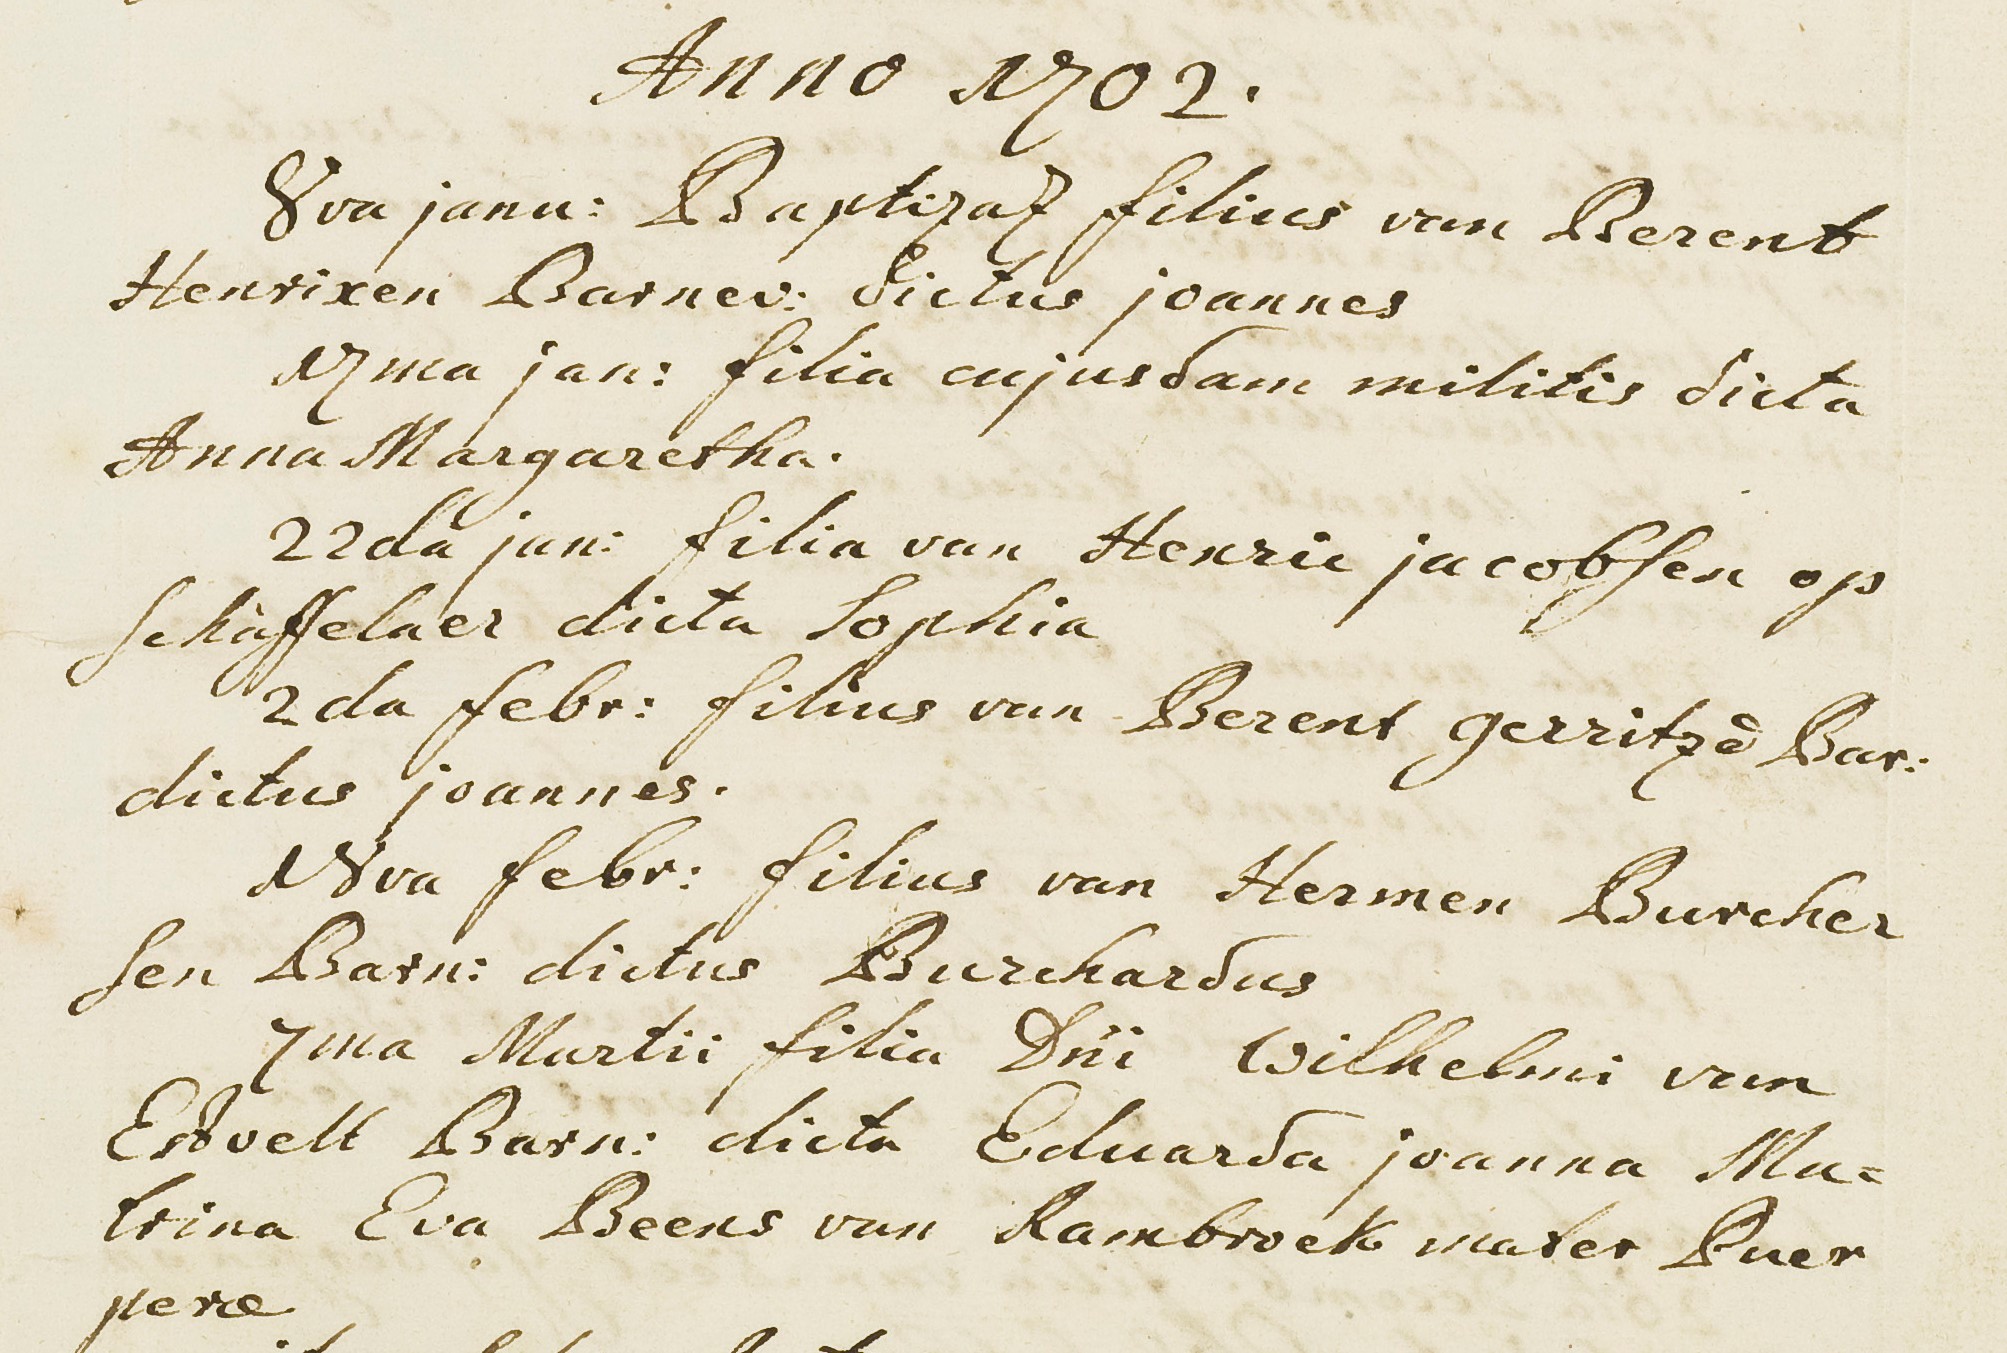 Anno 1702.
8va janu: Baptizat filius van Berent
Henrixen Barnev: dictus joannes
17ma jan: filia cujusdam militis dicta
Anna Margaretha.
22da jan: filia van Henric jacobsen op
schaffelaer dicta Sophia
2da febr: filius van Berent gerritzē Bar:
dictus joannes.
18va febr: filius van Hermen Burcher
sen Barn: dictus Burchardus
7ma Martii filia Dn̄i Wilhelmi van
Estvelt Barn: dicta Eduarda joanna Ma=
trina Eva Beens van Rambroek mater Puer
peræ